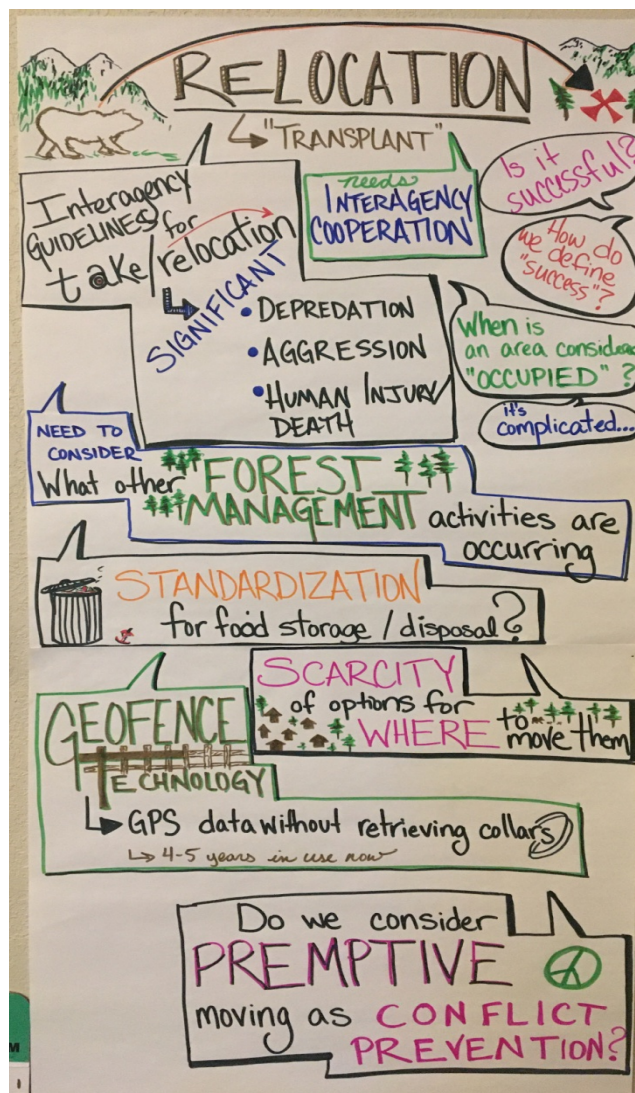 RELOCATION
"TRANSPLANT"
Interagency
GUIDELINES for
take/relocation
SIGNIFICANT
• DEPREDATION
• AGGRESSION
• HUMAN INJURY/
DEATH
needs
INTERAGENCY
COOPERATION
Is it
successful?
How do
we define
"success"?
When is
an area considered
"OCCUPIED"?
it's
complicated...
NEED TO
CONSIDER
What other FOREST
MANAGEMENT activities are
occurring
STANDARDIZATION
for food storage / disposal?
SCARCITY
of options for
WHERE to
move them
GEOFENCE
TECHNOLOGY
GPS data without retrieving collars
4-5 years in use now
Do we consider
PREMPTIVE
moving as CONFLICT
PREVENTION?
M